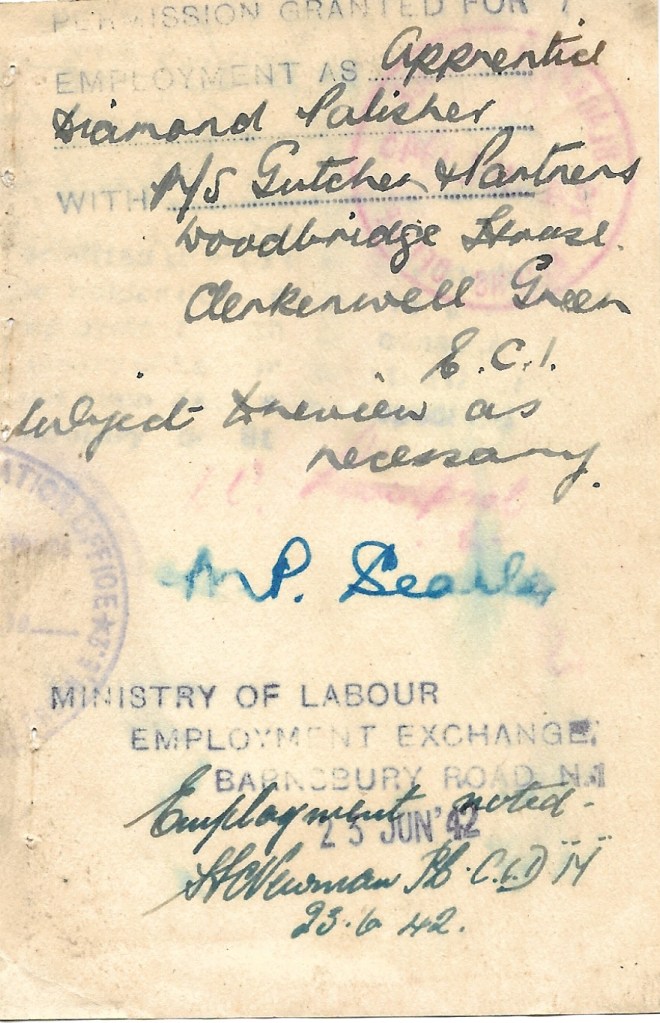 PERMISSION GRANTED FOR
EMPLOYMENT AS Apprentice
Diamond Polisher
WITH M/S Gutcher & Partners
Woodbridge House.
Clerkenwell Green
E.C.1.
Subject to review as
necessary.
P. Searle
MINISTRY OF LABOUR
EMPLOYMENT EXCHANGE,
BARNSBURY ROAD N.1
Employment noted -
23 JUN '42
Newman
23.6.42.